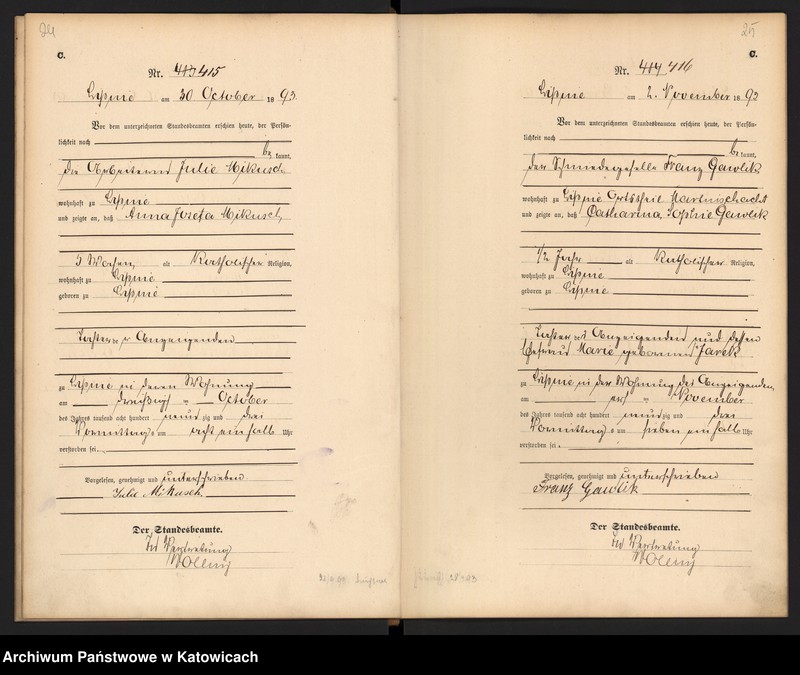 C.
Nr. 413 415
Lipine am 30 October 1893.
Vor dem unterzeichneten Standesbeamten erschien heute, der Persön-
lichkeit nach
be kannt,
die Arbeiterin Julie Mikusch
wohnhaft zu Lipine
und zeigte an, daß Anna Josefa Mikusch,
5 Wochen, alt Katholischer Religion,
wohnhaft zu Lipine
geboren zu Lipine
Tochter der Anzeigenden
zu Lipine in deren Wohnung
am dreißigsten October
des Jahres tausend acht hundert neunzig und drei
Vormittags um acht ein halb Uhr
verstorben sei.
Vorgelesen, genehmigt und unterschrieben
Julie Mikusch.
Der Standesbeamte.
In Vertretung
Wolleny
25
C.
Nr. 414 416
Lipine am 2. November 1893
Vor dem unterzeichneten Standesbeamten erschien heute, der Persön-
lichkeit nach
be kannt,
der Schmiedegeselle Franz Gawlik,
wohnhaft zu Lipine Ortstheil Martinschacht
und zeigte an, daß Catharina Sophie Gawlik
1/2 Jahr alt Katholischer Religion,
wohnhaft zu Lipine
geboren zu Lipine
Tochter des Anzeigenden und dessen
Ehefrau Marie geborenen Jarek
zu Lipine in der Wohnung des Anzeigenden,
am November
des Jahres tausend acht hundert neunzig und drei
Vormittags um sieben ein halb Uhr
verstorben sei.
Vorgelesen, genehmigt und unterschrieben
Franz Gawlik
Der Standesbeamte.
In Vertretung
Wolleny
Archiwum Państwowe w Katowicach